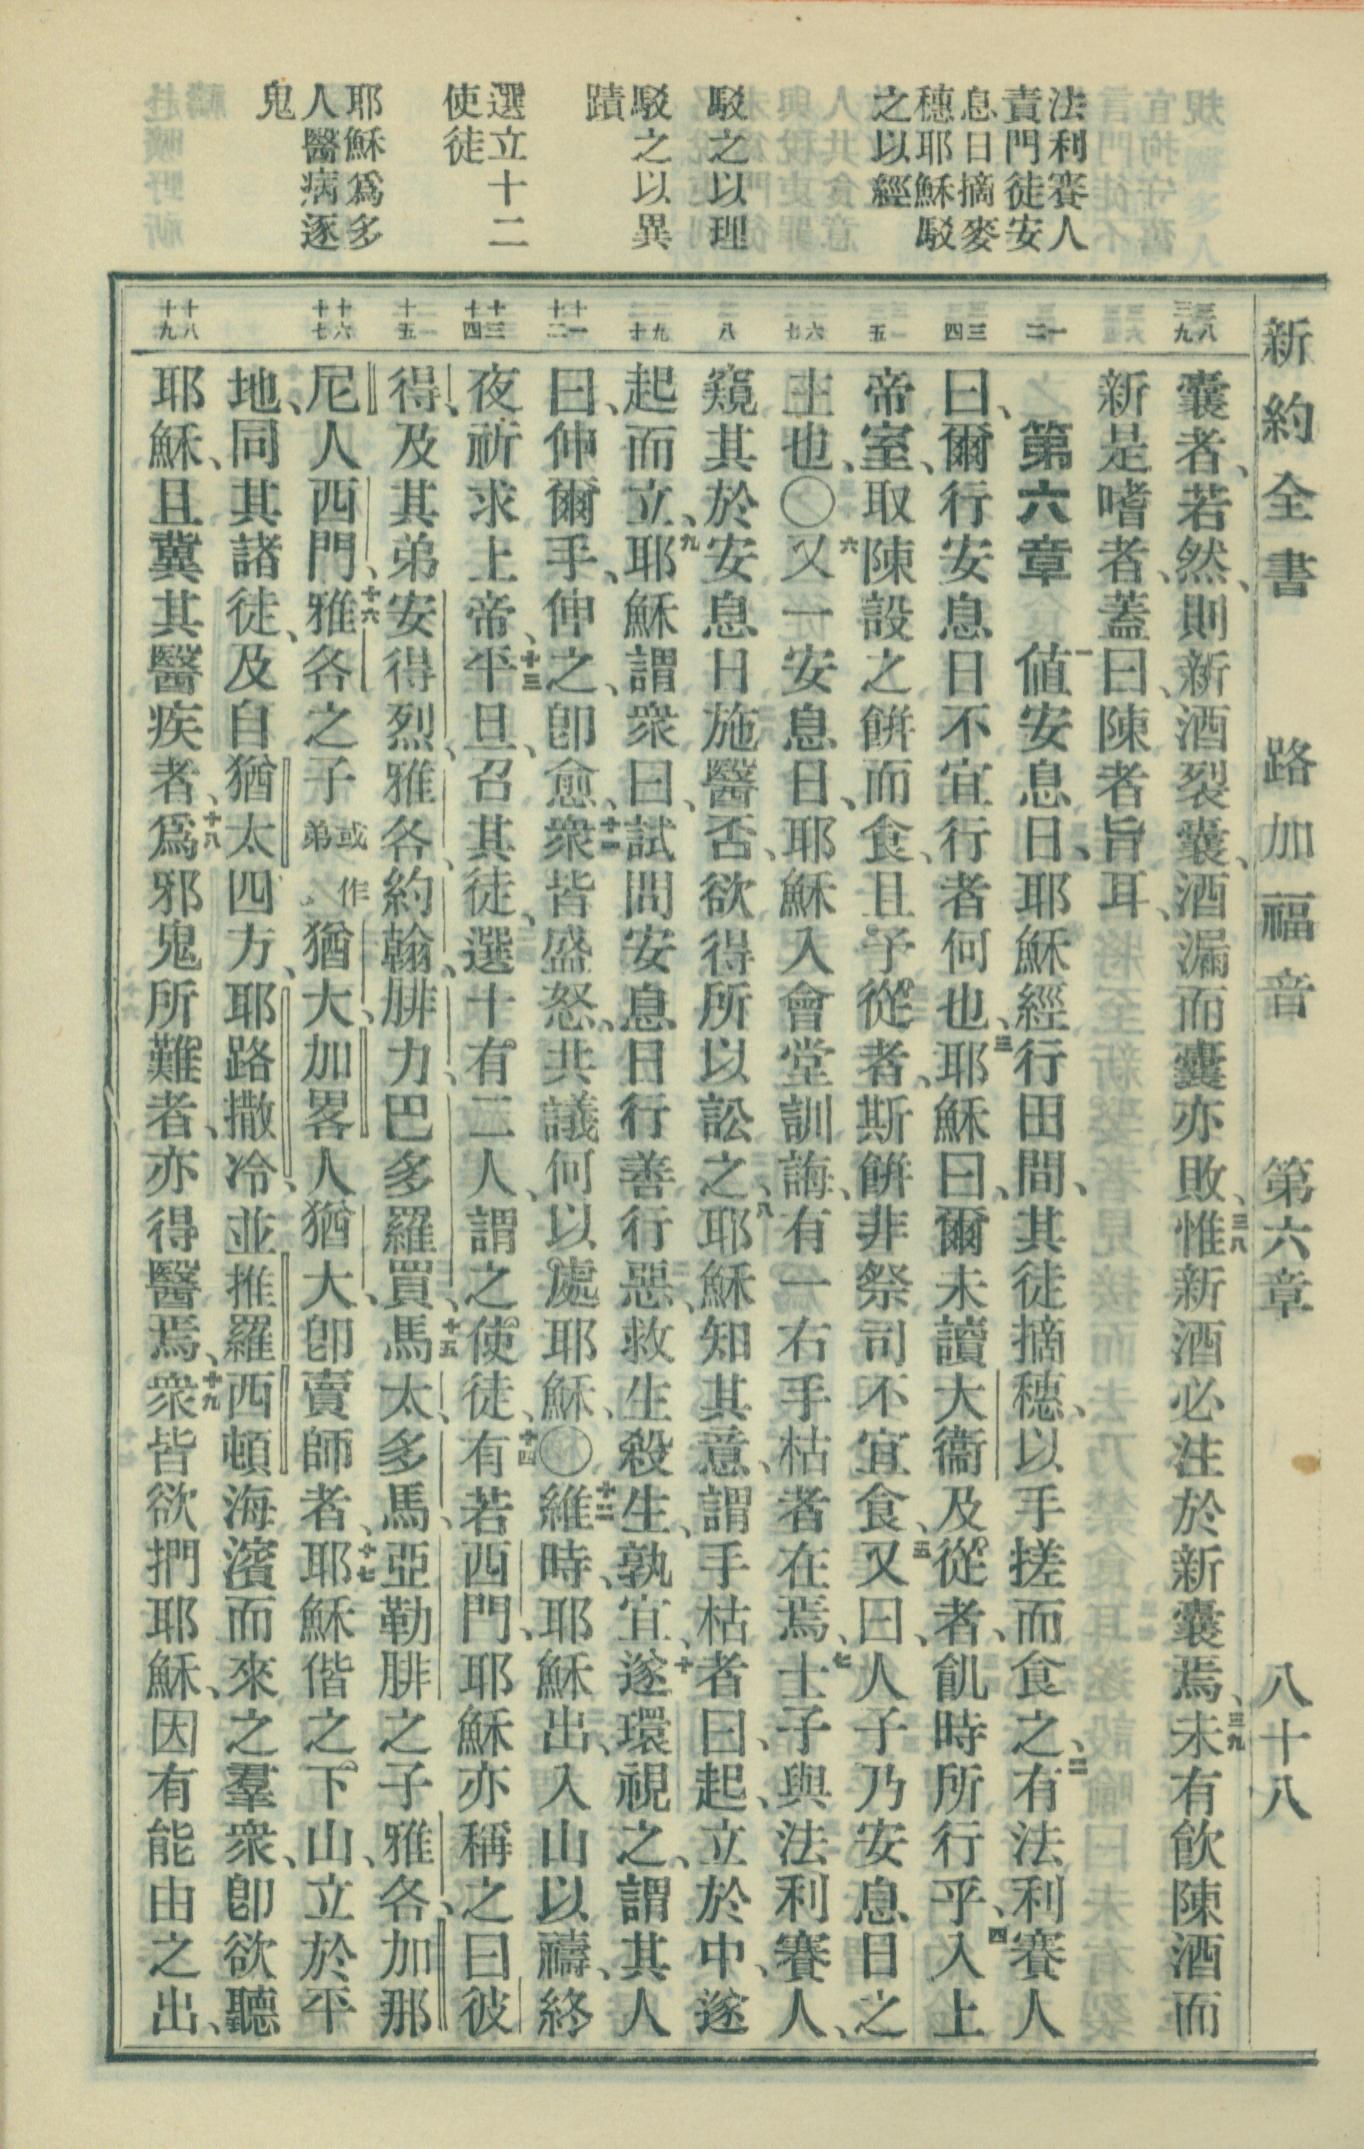 新約全書　路加福音　第六章　八十八
法利賽人
責門徒安
息日摘麥
穗耶穌駁
之以經
駁之以理
駁之以異
蹟
選立十二
使徒
耶穌爲多
人醫病逐
鬼
三八
三九
一
二
三
四
五
六
七
八
九
十
十一
十二
十三
十四
十五
十六
十七
十八
十九
囊者、若然、則新酒裂囊、酒漏而囊亦敗、三八惟新酒必注於新囊焉、三九未有飲陳酒而
新是嗜者、蓋曰、陳者旨耳、
第六章　一値安息日、耶穌經行田間、其徒摘穗、以手搓而食之、二有法利賽人
曰、爾行安息日不宜行者何也、三耶穌曰、爾未讀大衞及從者、飢時所行乎、四入上
帝室、取陳設之餅而食、且予從者、斯餅非祭司不宜食、五又曰、人子乃安息日之
主也、〇六又一安息日、耶穌入會堂訓誨、有一右手枯者在焉、七士子與法利賽人、
窺其於安息日施醫否、欲得所以訟之、八耶穌知其意、謂手枯者曰、起、立於中、遂
起而立、九耶穌謂衆曰、試問安息日行善行惡、救生殺生、孰宜、十遂環視之、謂其人
曰、伸爾手、伸之、卽愈、十一衆皆盛怒、共議何以處耶穌、〇十二維時、耶穌出、入山以禱、終
夜祈求上帝、十三平旦、召其徒、選十有二人、謂之使徒、十四有若西門、耶穌亦稱之曰彼
得、及其弟安得烈、雅各、約翰、腓力、巴多羅買、十五馬太、多馬、亞勒腓之子雅各、加那
尼人西門、十六雅各之子或作弟、猶大、加畧人猶大、卽賣師者、十七耶穌偕之下山、立於平
地、同其諸徒、及自猶太四方、耶路撒冷、並推羅西頓海濱而來之羣衆、卽欲聽
耶穌、且冀其醫疾者、十八爲邪鬼所難者、亦得醫焉、十九衆皆欲捫耶穌、因有能由之出、